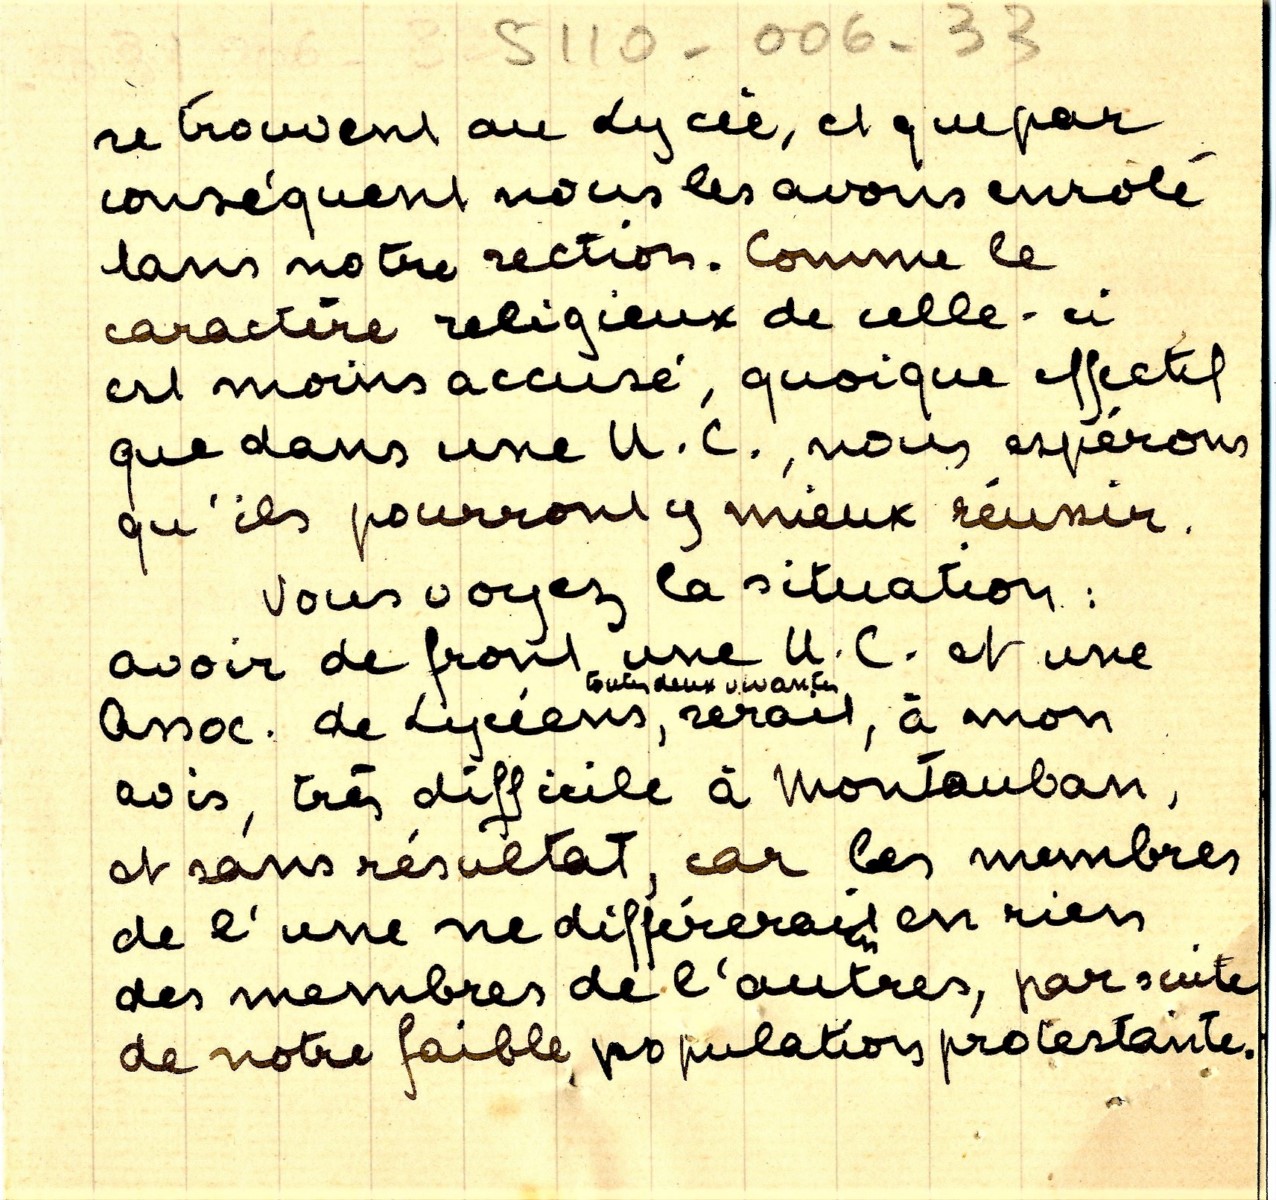 5110-006-33
se trouvent au Lycée, et que par
conséquent nous les avons enrolé
dans notre section. Comme le
caractère religieux de celle-ci
est moins accusé, quoique effectif
que dans une U.C., nous espérons
qu'ils pourront y mieux réussir.
Vous voyez la situation :
avoir de front une U.C. et une
toutes deux vivantes
Assoc. de Lycéens, serait, à mon
avis, très difficile à Montauban,
et sans résultat, car les membres
de l'une ne différeraient en rien
des membres de l'autres, par suite
de notre faible population protestante.